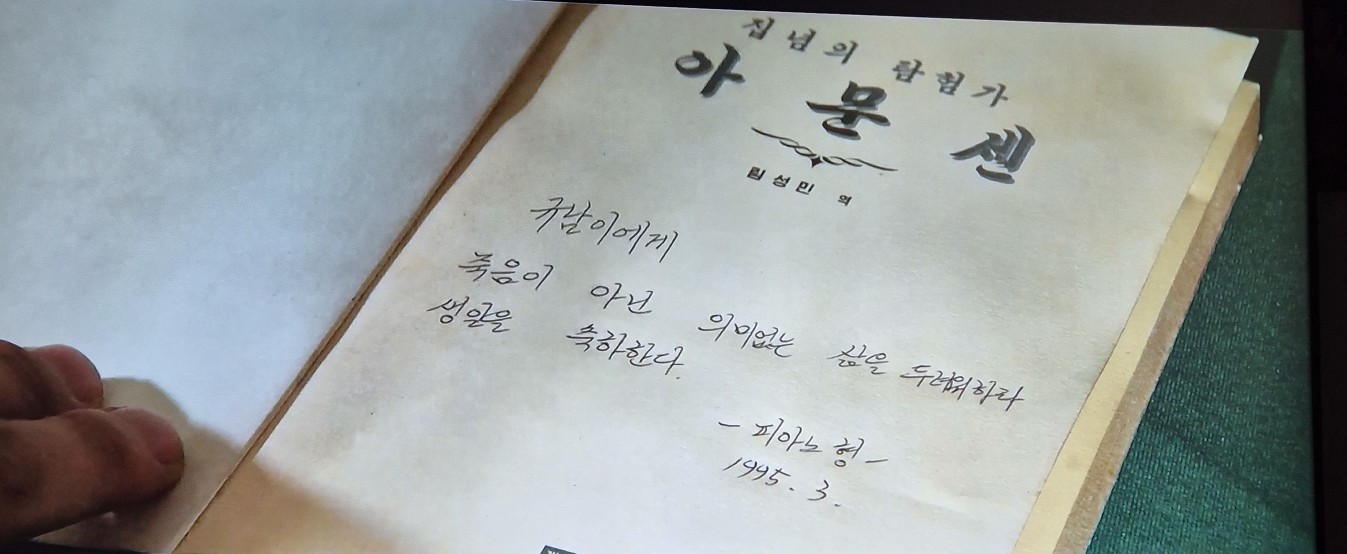 집념의 탐험가
아문센
림성민 역
규남이에게
죽음이 아닌 의미없는 삶을 두려워하라
생일을 축하한다.
- 피아노 형 -
1995. 3.